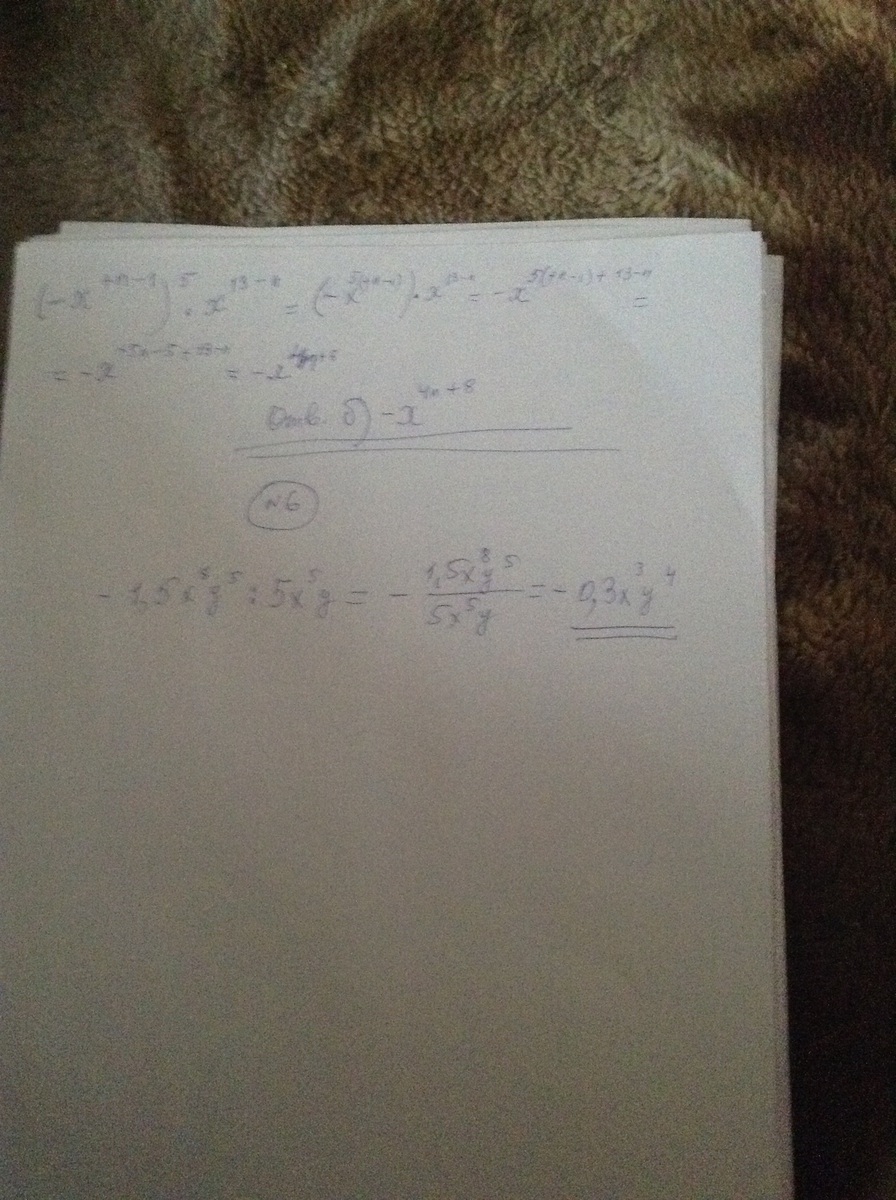 (-x^{+n-1})^5 · x^{13-n} = (-x^{5(+n-1)}) · x^{13-n} = -x^{5(+n-1)+13-n} =
= -x^{+5n-5+13-n} = -x
Отв. б) -x^{4n+8}
№6
-1,5x^8y^5 : 5x^5y = - \frac{1,5x^8y^5}{5x^5y} = -0,3x^3y^4